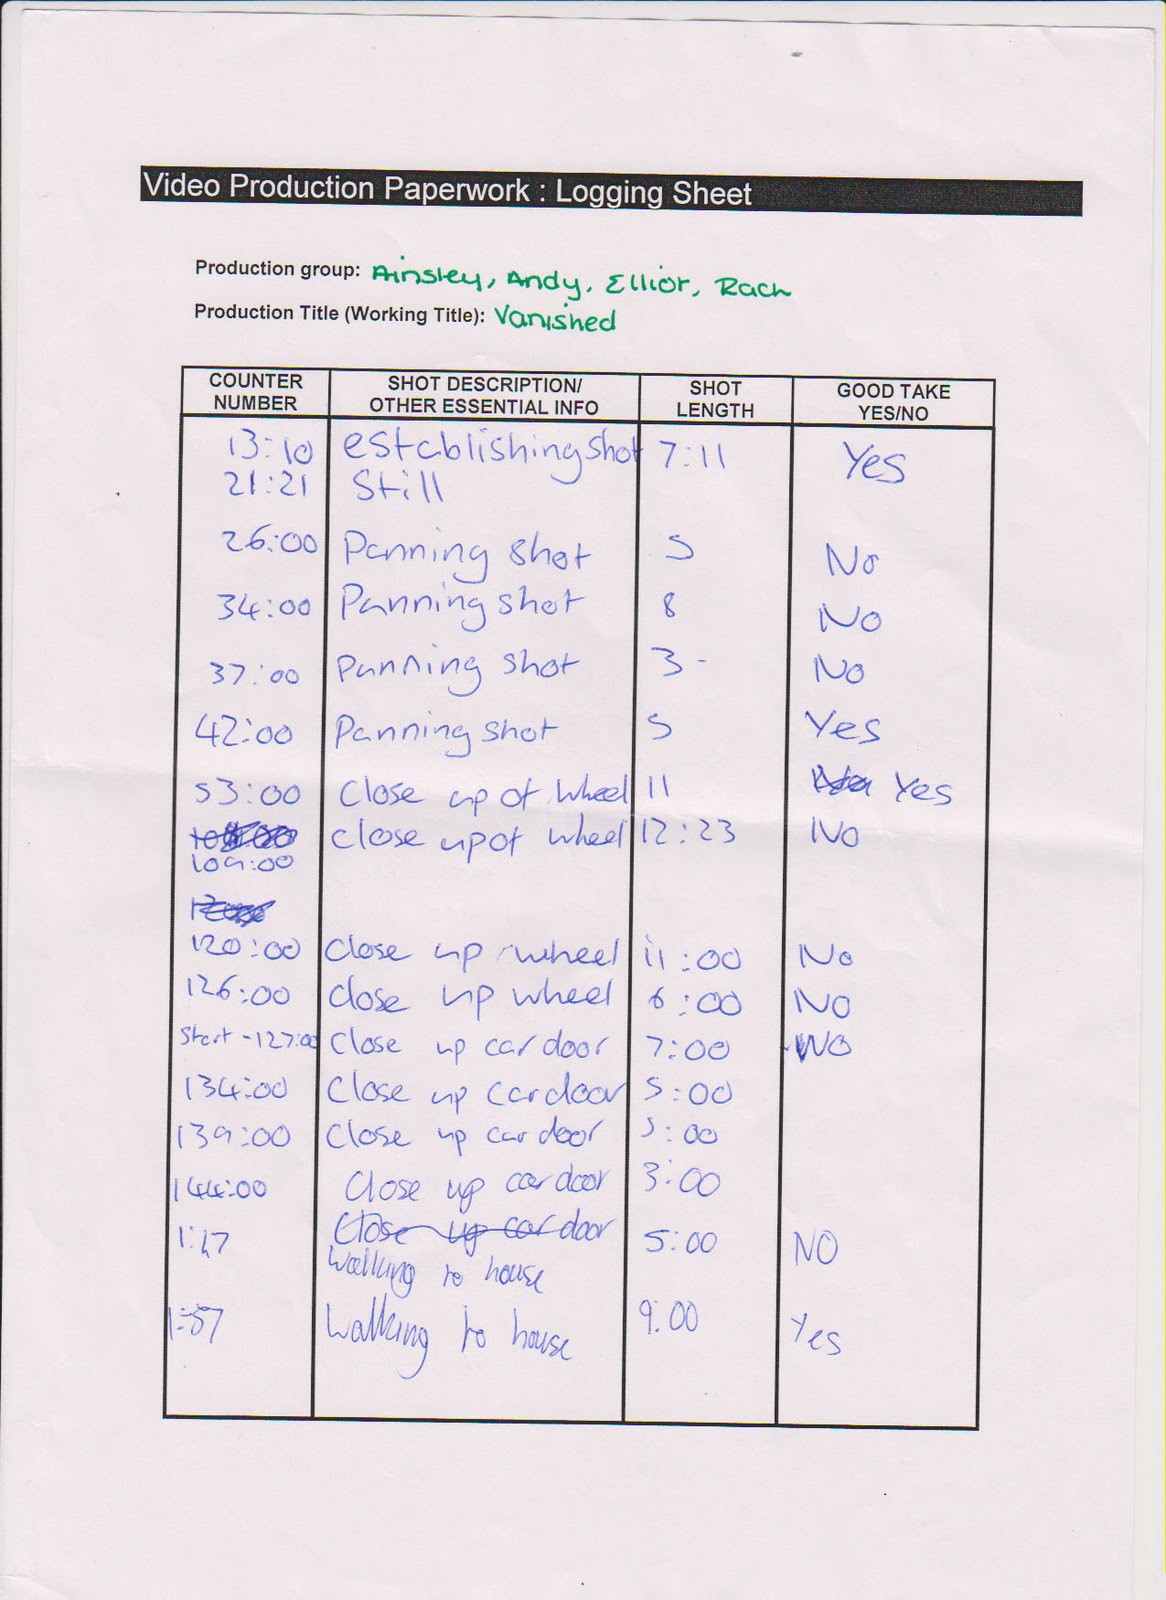 Video Production Paperwork : Logging Sheet
Production group: Ainsley, Andy, Elliot, Rach
Production Title (Working Title): Vanished
COUNTER NUMBER SHOT DESCRIPTION/ OTHER ESSENTIAL INFO SHOT LENGTH GOOD TAKE YES/NO
13:10 establishing shot 7:11 Yes
21:21 Still
26:00 Panning shot 5 No
34:00 Panning shot 8 No
37:00 Panning shot 3 - No
42:00 Panning shot 5 Yes
53:00 Close up of wheel 11 Yes
109:00 Close up of wheel 12:23 No
120:00 Close up wheel 11:00 No
126:00 close up wheel 6:00 NO
Start - 127:00 Close up car door 7:00 NO
134:00 Close up car door 5:00
139:00 Close up car door 5:00
144:00 Close up car door 3:00
1:47 Close up car door 5:00 NO
Walking to house
1:57 Walking to house 9:00 Yes